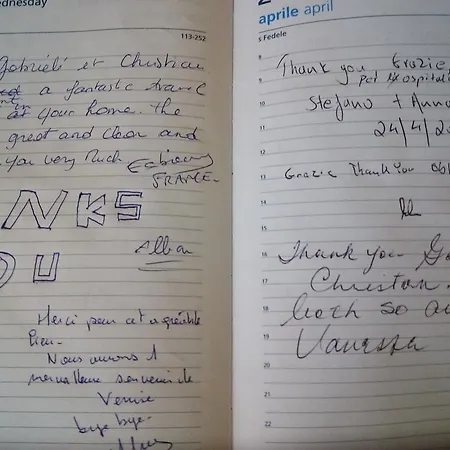 ednesday
113-252
Gabrieli et Christian
a fantastic travel
at your home. the
great and clean and
you very Much
FRANCE.
NKS
OU
Alban
Merci pour cet agréable
lieu-
Nous aurons 1
merveilleux souvenir de
Venise
bye bye-
aprile april
s Fedele
8
9
Thank you Grazie
10
per l'ospital
Stefano + Anna
11
12
24/4/2
13
Grazie Thank You Ob
14
15
16
Thank you Ga
17
Christian.
18
both so a
19
Vanessa
20
22